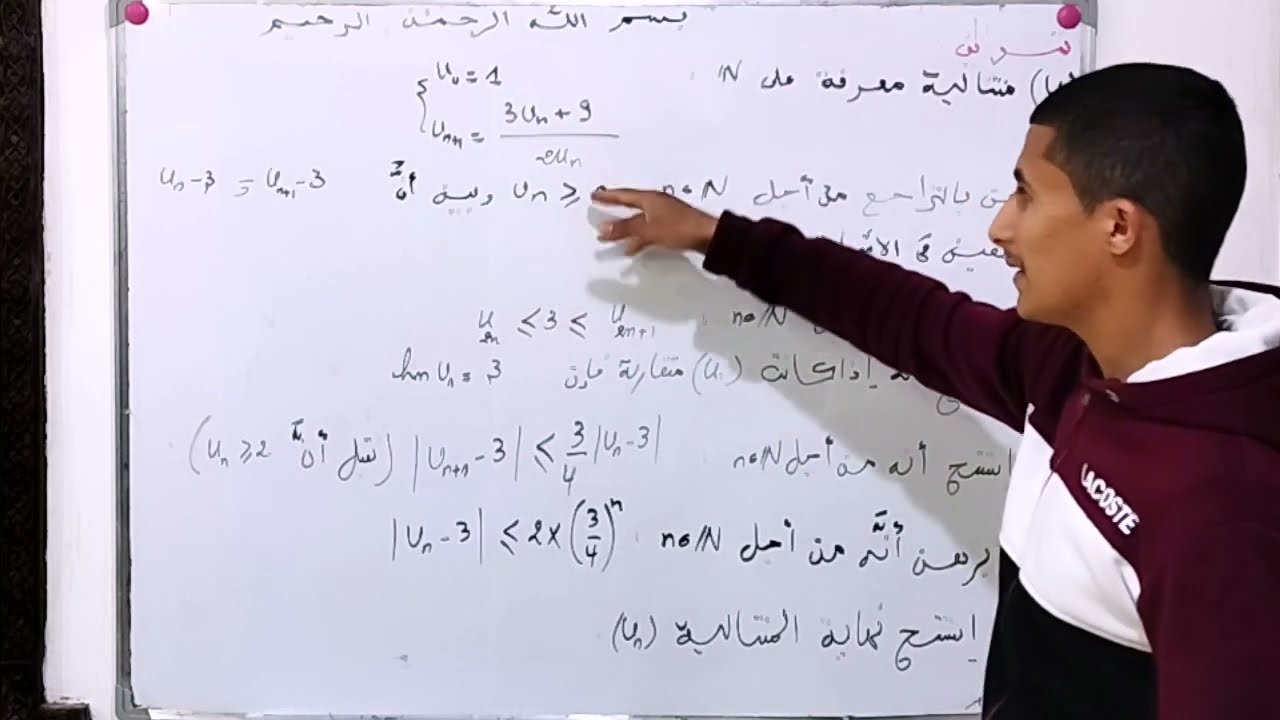 بسم الله الرحمن الرحيم
تمرين
متتالية معرفة على N :
U₀ = 1
Uₙ₊₁ = (3Uₙ + 9) / 2Uₙ
بالتراجع من أجل n∈N Uₙ ≥ وبين أنّ Uₙ - 3 و Uₙ₊₁ - 3
في
n∈N : U₂ₙ ≤ 3 ≤ U₂ₙ₊₁
إذا كانت (Uₙ) متقاربة فإن lim Uₙ = 3
استنتج أنه من أجل n∈N |Uₙ₊₁ - 3| ≤ 3/4 |Uₙ - 3| (نقبل أنّ Uₙ ≥ 2)
برهن أنّه من أجل n∈N : |Uₙ - 3| ≤ 2 × (3/4)ⁿ
استنتج نهاية المتتالية (Uₙ)
LACOSTE